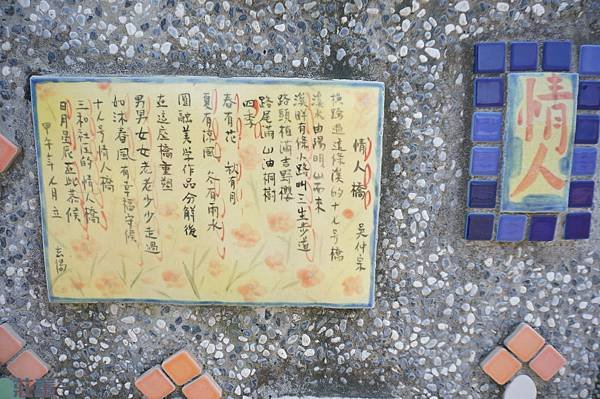 情人橋
吳仲宗
橫跨過這條溪的十八号橋
溪水由陽明山而來
溪畔有條小路叫三生步道
路頭植滿吉野櫻
路尾滿山油桐樹
四季
春有花 秋有月
夏有涼風 冬有雨水
圓融美學作品分解後
在這座橋重塑
男男女女老老少少走過
如沐春風有幸福守候
十八号情人橋
三和社區的情人橋
日月星辰在此恭候
甲午年八月立
情人